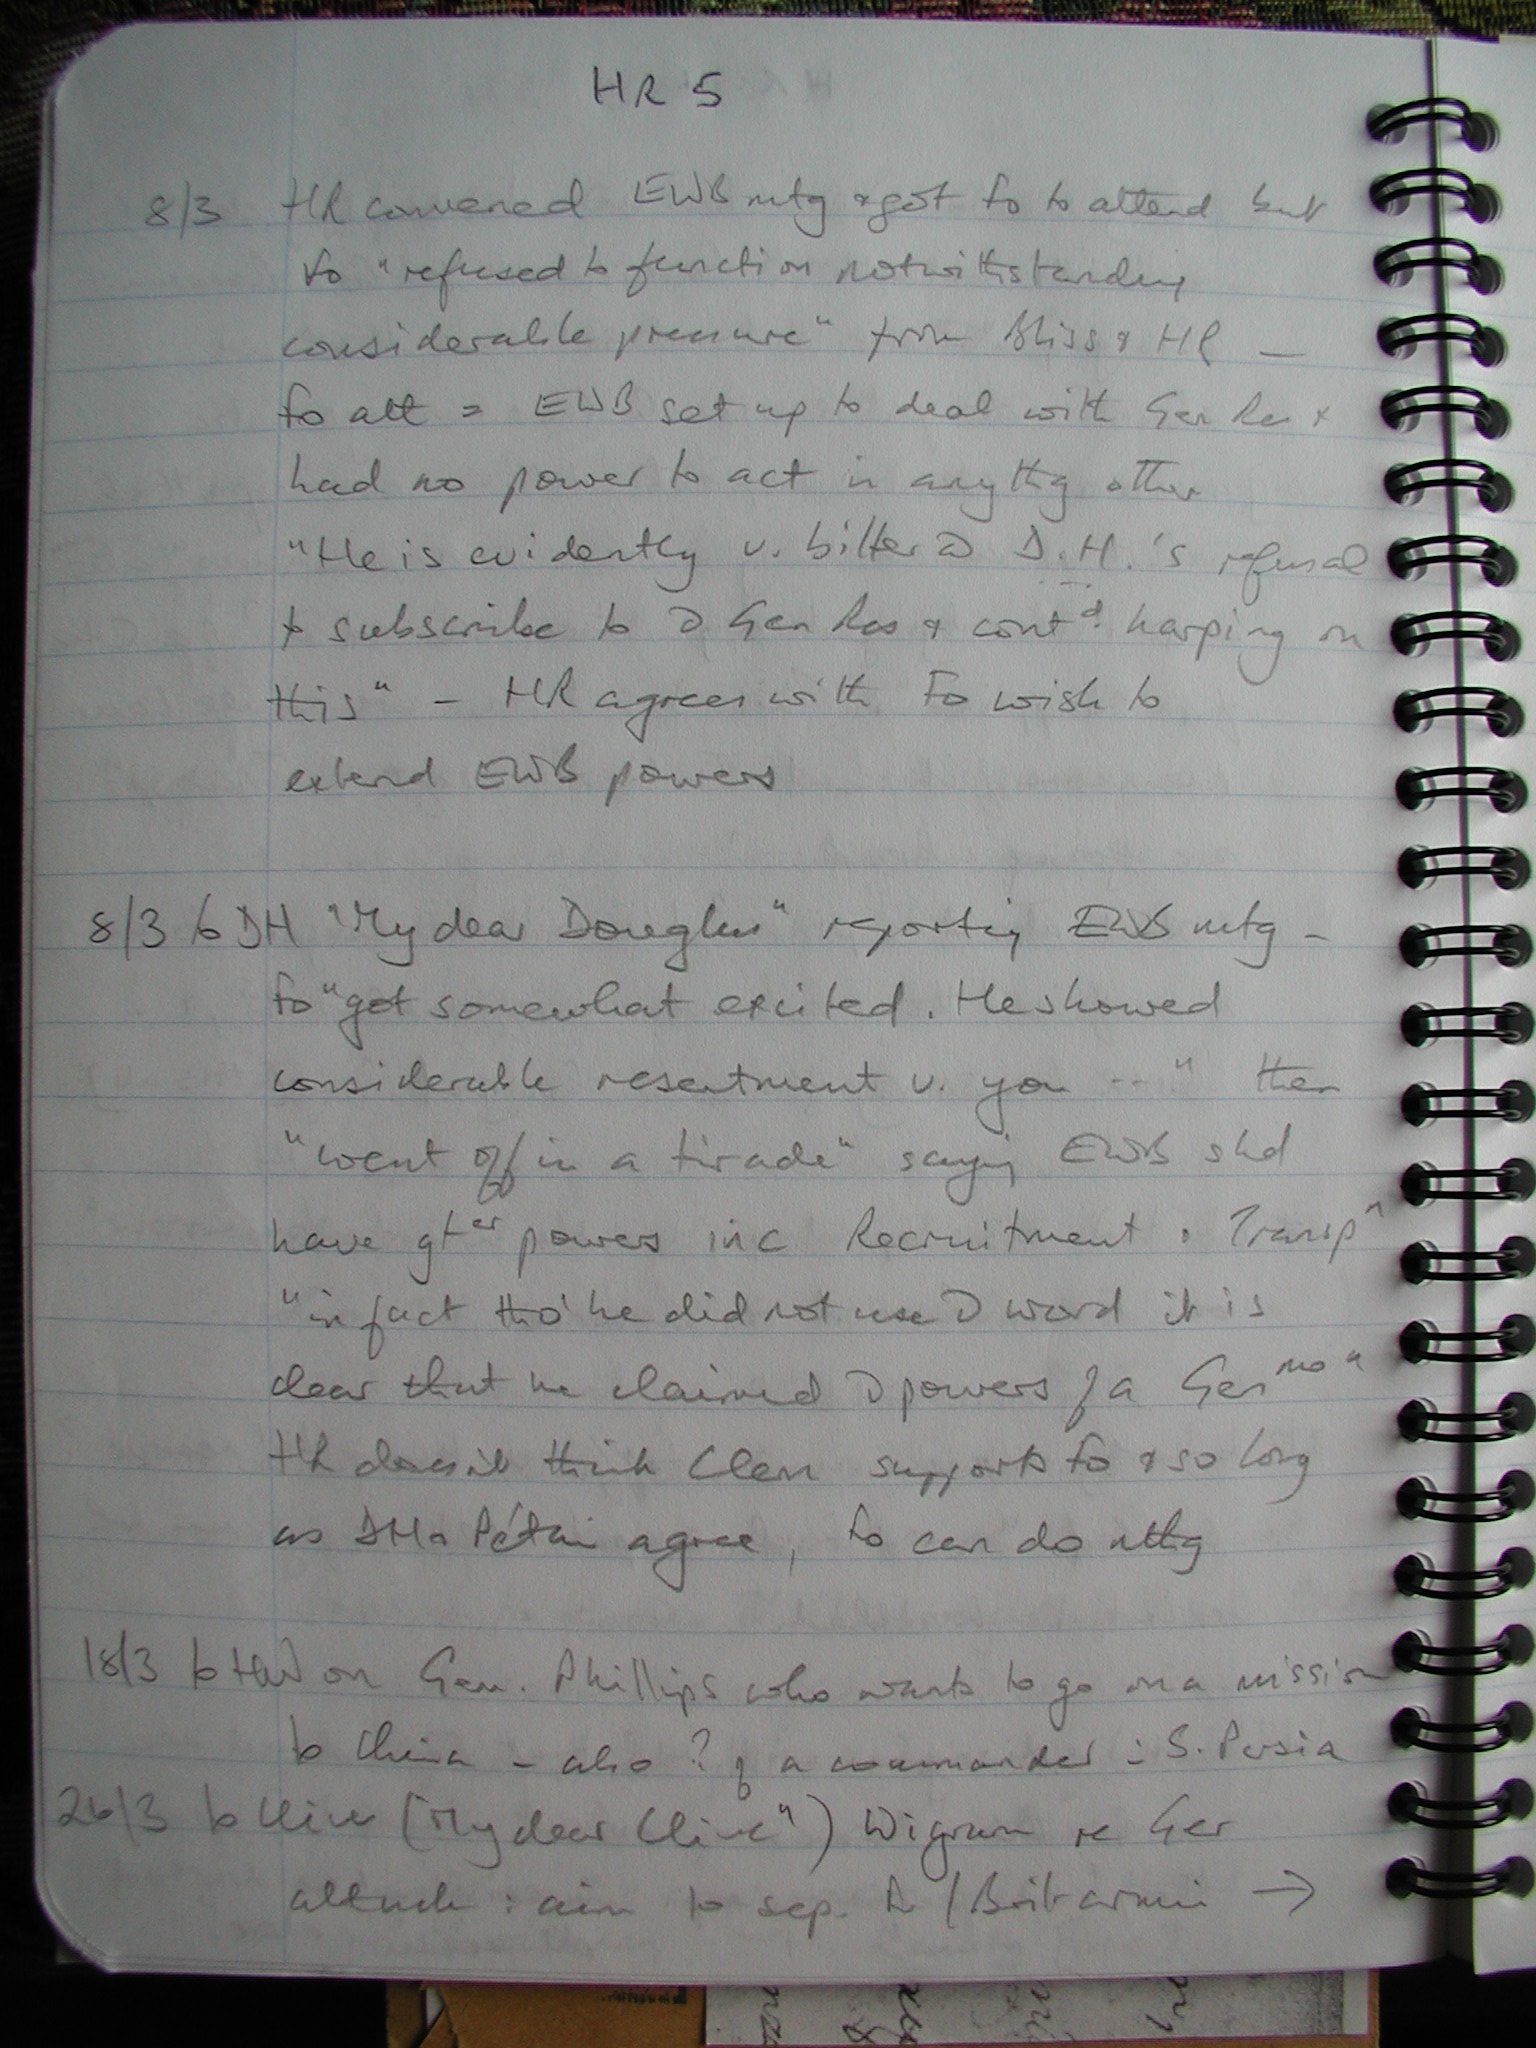 HR 5
8/3 HR convened EWB mtg & got Fo to attend but
Fo "refused to function notwithstanding
considerable pressure" from Bliss & HR —
Fo att = EWB set up to deal with Gen Res &
had no power to act in anythg other
"He is evidently v. bitter D.H.'s refusal
to subscribe to Gen Res & contd. harping on
this" – HR agrees with Fo wish to
extend EWB powers
8/3 to DH "My dear Douglas" reporting EWB mtg –
Fo "got somewhat excited. He showed
considerable resentment v. you ..." then
"went off in a tirade" saying EWB shd
have gter powers inc Recruitment & Transpn
"in fact tho' he did not use word it is
clear that he claimed powers of a Genmo"
HR doesn't think Clem supports Fo & so long
as DH & Pétain agree, Fo can do nthg
18/3 to HW on Gen. Phillips who wants to go on a mission
to China – also ? of a commander : S. Persia
26/3 to Clive (My dear Clive") Wigram re Ger
attack : aim to sep. /Brit armies →